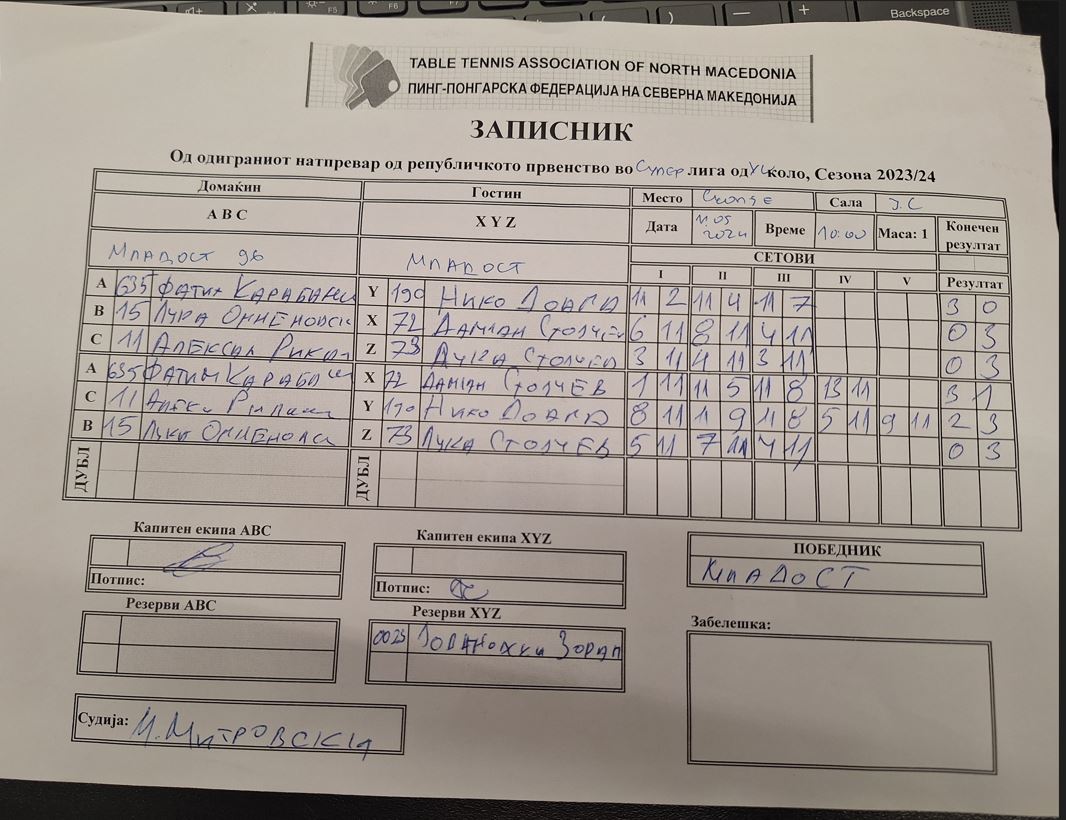 Backspace
TABLE TENNIS ASSOCIATION OF NORTH MACEDONIA
ПИНГ-ПОНГАРСКА ФЕДЕРАЦИЈА НА СЕВЕРНА МАКЕДОНИЈА
ЗАПИСНИК
Од одиграниот натпревар од републичкото првенство во Супер лига од коло, Сезона 2023/24
Домаќин Гостин Место Скопје Сала
А В С X Y Z Дата 11.05 2024 Време 10:00 Маса: 1 Конечен резултат
Младост 96 Младост СЕТОВИ
I II III IV V Резултат
A 635 Фатин Y 190 Нико 11 2 11 4 11 7 3 0
B 15 Лука X 72 Дамјан Столчев 6 11 8 11 4 11 0 3
C 11 Z 73 Лука Столчев 3 11 4 11 3 11 0 3
A 635 X 72 Дамјан Столчев 1 11 11 5 11 8 13 11 3 1
C 11 Y 190 Нико 8 11 11 9 11 8 5 11 9 11 2 3
B 15 Z 73 Лука Столчев 5 11 7 11 4 11 0 3
ДУБЛ ДУБЛ
Капитен екипа АВС Капитен екипа XYZ ПОБЕДНИК
Младост
Потпис: Потпис:
Резерви АВС Резерви XYZ Забелешка:
0025 Зоран
Судија: М. Митровски